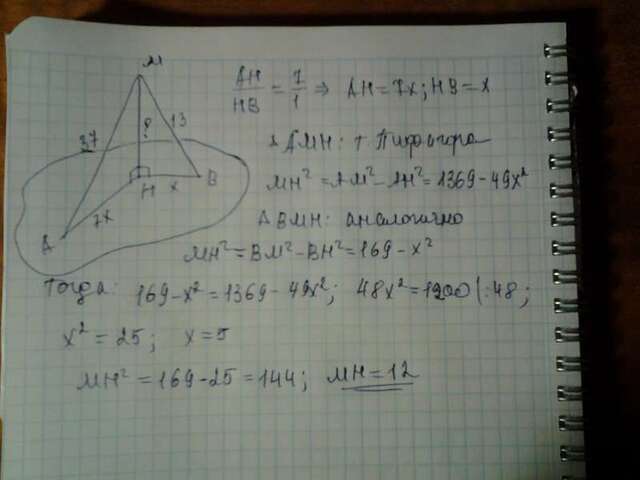 M
37
13
?
H
x
B
7x
A
AH/HB = 7/1 ⇒ AH = 7x; HB = x
△ AMH: т. Пифагора
MH² = AM² - AH² = 1369 - 49x²
△ BMH: аналогично
MH² = BM² - BH² = 169 - x²
Тогда: 169 - x² = 1369 - 49x²; 48x² = 1200 |:48;
x² = 25; x = 5
MH² = 169 - 25 = 144; MH = 12